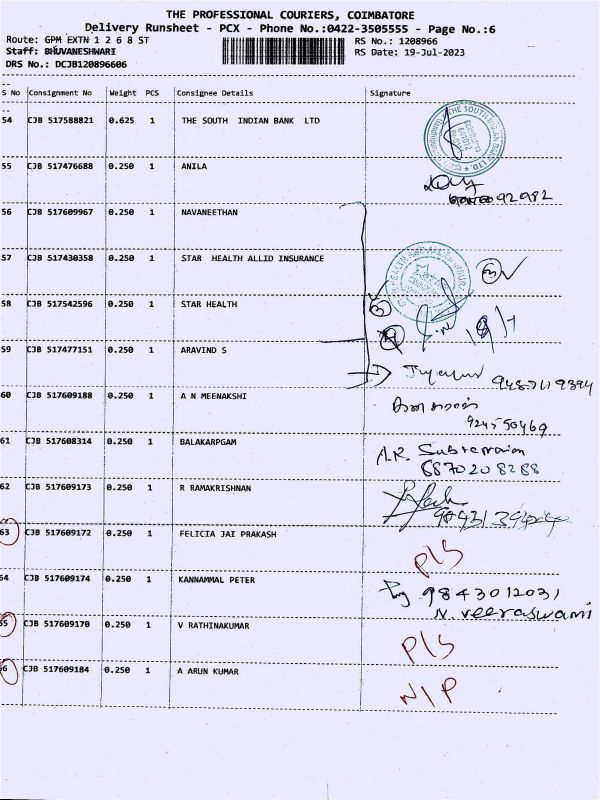 THE PROFESSIONAL COURIERS, COIMBATORE
Delivery Runsheet - PCX - Phone No.:0422-3505555 - Page No.:6
Route: GPM EXTN 1 2 6 8 ST RS No.: 1208966
Staff: BHUVANESHWARI RS Date: 19-Jul-2023
DRS No.: DCJB120896606
S No Consignment No Weight PCS Consignee Details Signature
54 CJB 517588821 0.625 1 THE SOUTH INDIAN BANK LTD
55 CJB 517476688 0.250 1 ANILA
92982
56 CJB 517609967 0.250 1 NAVANEETHAN
57 CJB 517430358 0.250 1 STAR HEALTH ALLID INSURANCE
58 CJB 517542596 0.250 1 STAR HEALTH
59 CJB 517477151 0.250 1 ARAVIND S
60 CJB 517609188 0.250 1 A N MEENAKSHI
61 CJB 517608314 0.250 1 BALAKARPGAM
A.R. Subramanian
6870208288
62 CJB 517609173 0.250 1 R RAMAKRISHNAN
63 CJB 517609172 0.250 1 FELICIA JAI PRAKASH
P/S
64 CJB 517609174 0.250 1 KANNAMMAL PETER
9843012031
N. veeraswami
65 CJB 517609170 0.250 1 V RATHINAKUMAR
P/S
66 CJB 517609184 0.250 1 A ARUN KUMAR
N/P